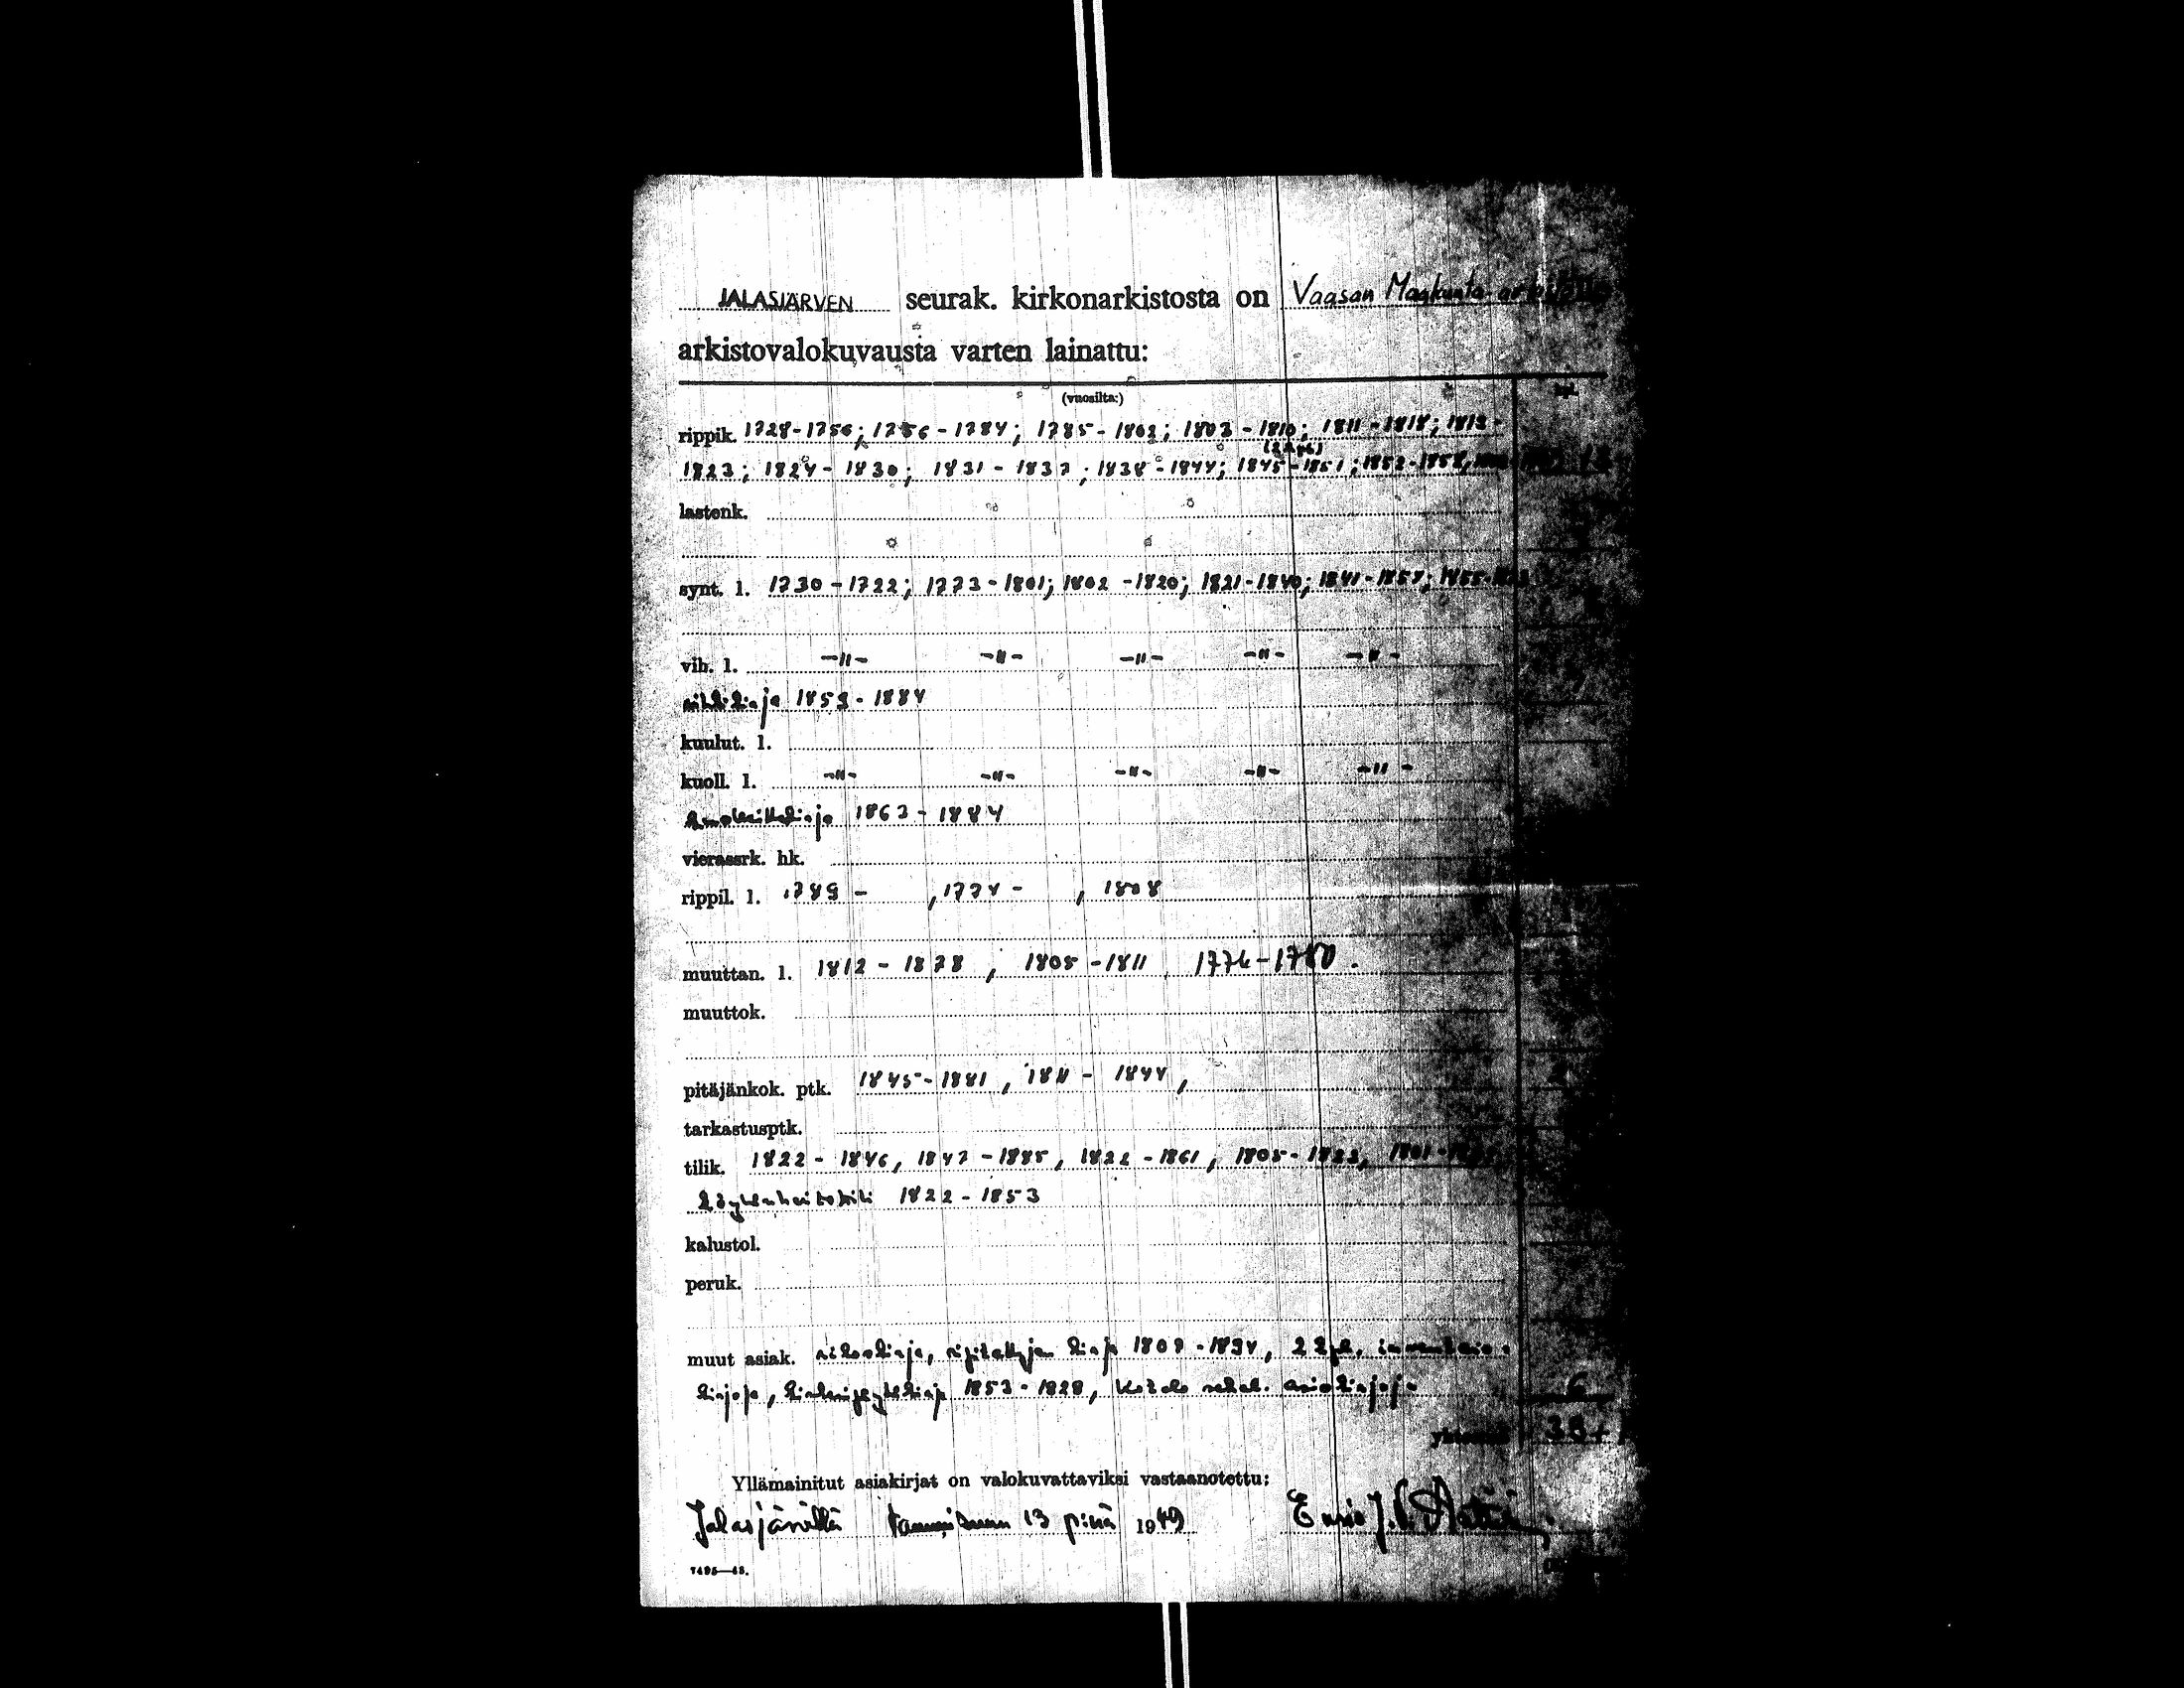 JALASJÄRVEN seurak. kirkonarkistosta on Vaasan Maakunta
arkistovalokuvausta varten lainattu:
(vuosilta:)
rippik. 1728-1756; 1756-1784; 1785-1802; 1803-1810; 1811-1818; 1818-
1823; 1824-1830; 1831-1837; 1838-1844; 1845-1851; 1852-1858,
lastenk.
synt. l. 1730-1722; 1773-1801; 1802-1820; 1821-1840; 1841-1854;
vih. l. -"- -"- -"- -"- -"-
1853-1884
kuulut. l.
kuoll. l. -"- -"- -"- -"- -"-
1863-1884
vierassrk. hk.
rippil. l. 1789 - , 1774 - , 1808
muuttan. l. 1812-1878, 1805-1811, 1776-1780.
muuttok.
pitäjänkok. ptk. 1845-1881, 1811-1844,
tarkastusptk.
tilik. 1822-1846, 1847-1885, 1822-1861, 1805-1823,
1822-1853
kalustol.
peruk.
muut asiak. rikoskirja, 1809-1894, 2
kirjoja, 1853-1828, asiakirjoja
6
Yllämainitut asiakirjat on valokuvattaviksi vastaanotettu:
Jalasjärvellä Tammikuun 13 p:nä 1949
7495—48.